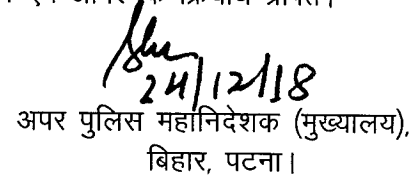 24/12/18
अपर पुलिस महानिदेशक (मुख्यालय),
बिहार, पटना।